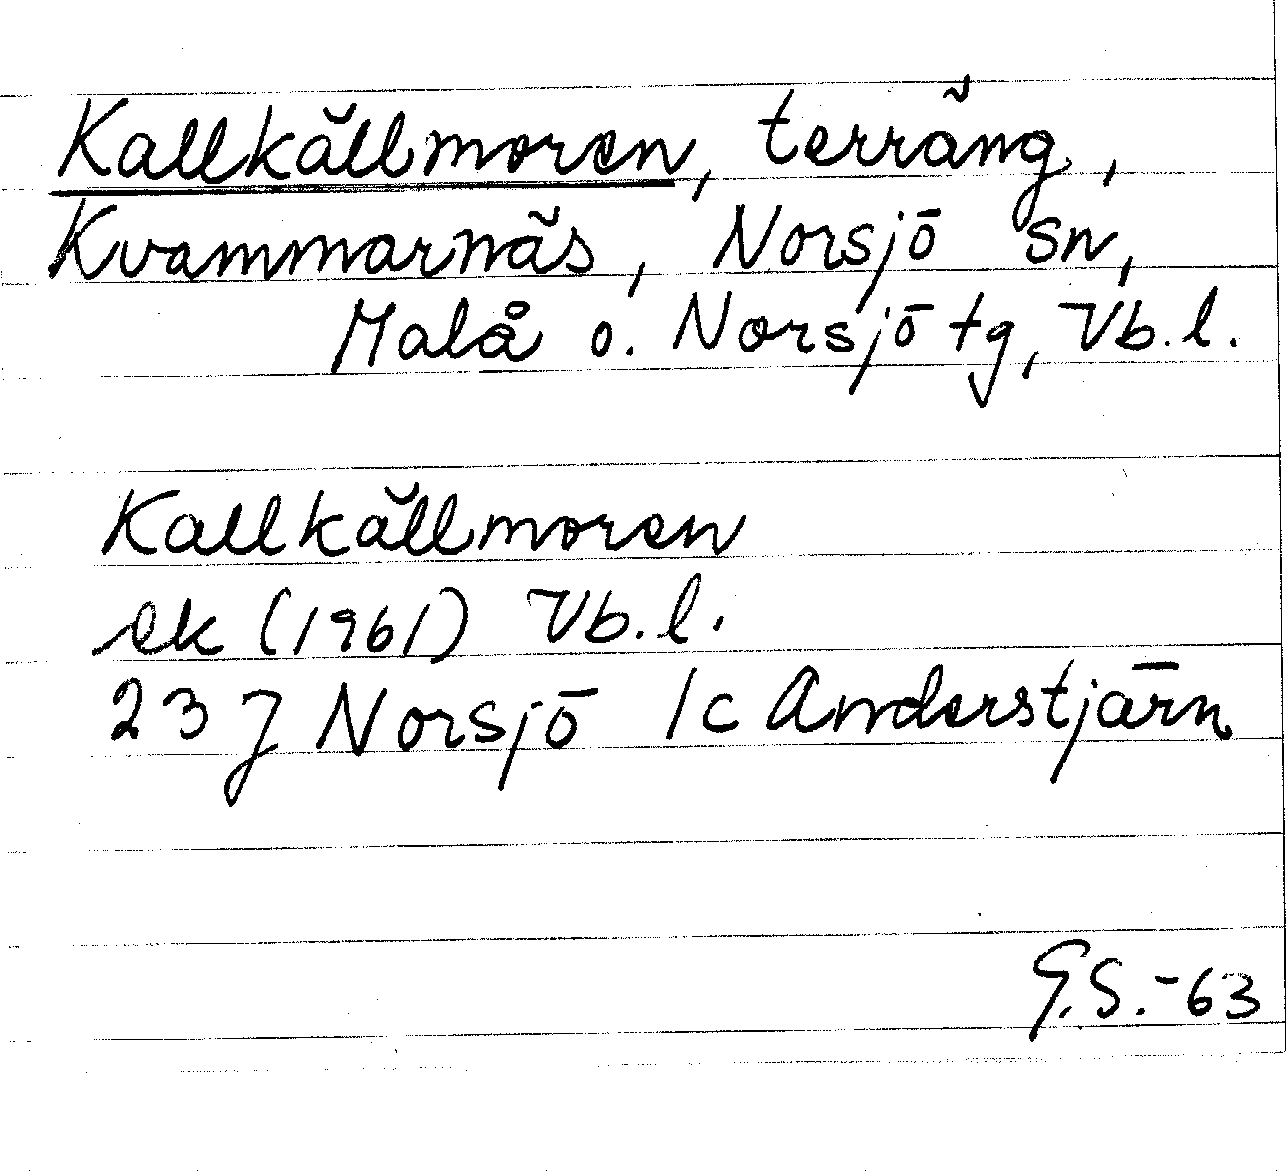 Kallkällmoren, terräng,
Kvammarnäs, Norsjö sn,
Malå o. Norsjö tg, Vb.l.
Kallkällmoren
ek (1961) Vb.l.
23 J Norsjö 1c Anderstjärn
G.S.-63